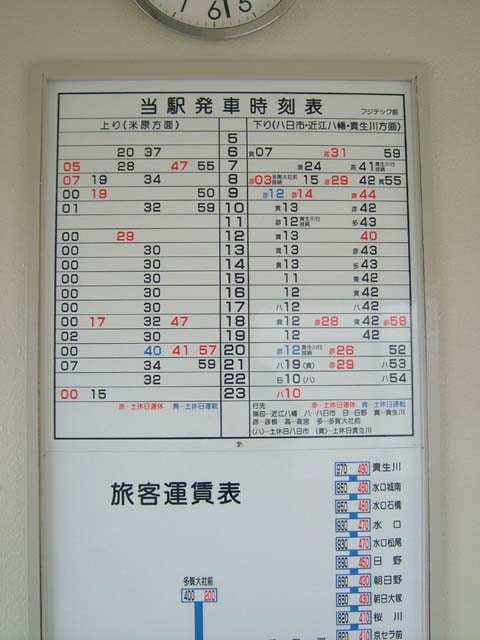 7 6 5
当駅発車時刻表 フジテック前
上り(米原方面) 下り(八日市・近江八幡・貴生川方面)
5
20 37 6 貴07 高31 59
05 28 47 55 7 貴24 高41 貴生川行接続
07 19 34 8 彦03 多賀大社前接続 15 彦29 42 貴55
00 19 50 9 彦12 彦14 貴44
01 32 59 10 貴13 彦42
11 彦12 貴生川行接続 多43
00 29 12 貴13 40
00 30 13 貴13 彦43
00 30 14 貴13 多43
00 30 15 11 貴42
00 30 16 12 貴42
00 30 17 八12 八42
00 17 32 47 18 貴12 彦28 貴42 多58
02 30 19 12 42
00 40 41 57 20 彦12 貴生川行接続 彦26 52
07 34 59 21 八19(貴) 彦29 八53
32 22 日10(八) 八54
00 15 23 八10
赤―土休日運休 青―土休日運転
行先 赤―土休日運休 青―土休日運転
無印―近江八幡 八―八日市 日―日野 貴―貴生川
彦―彦根 高―高宮 多―多賀大社前
(八)―土休日八日市 (貴)―土休日貴生川
旅客運賃表
970 490 貴生川
950 480 水口城南
950 480 水口石橋
930 470 水口
930 470 水口松尾
890 450 日野
860 430 朝日野
860 430 朝日大塚
820 410 桜川
820 410 京セラ前
多賀大社前
400 200